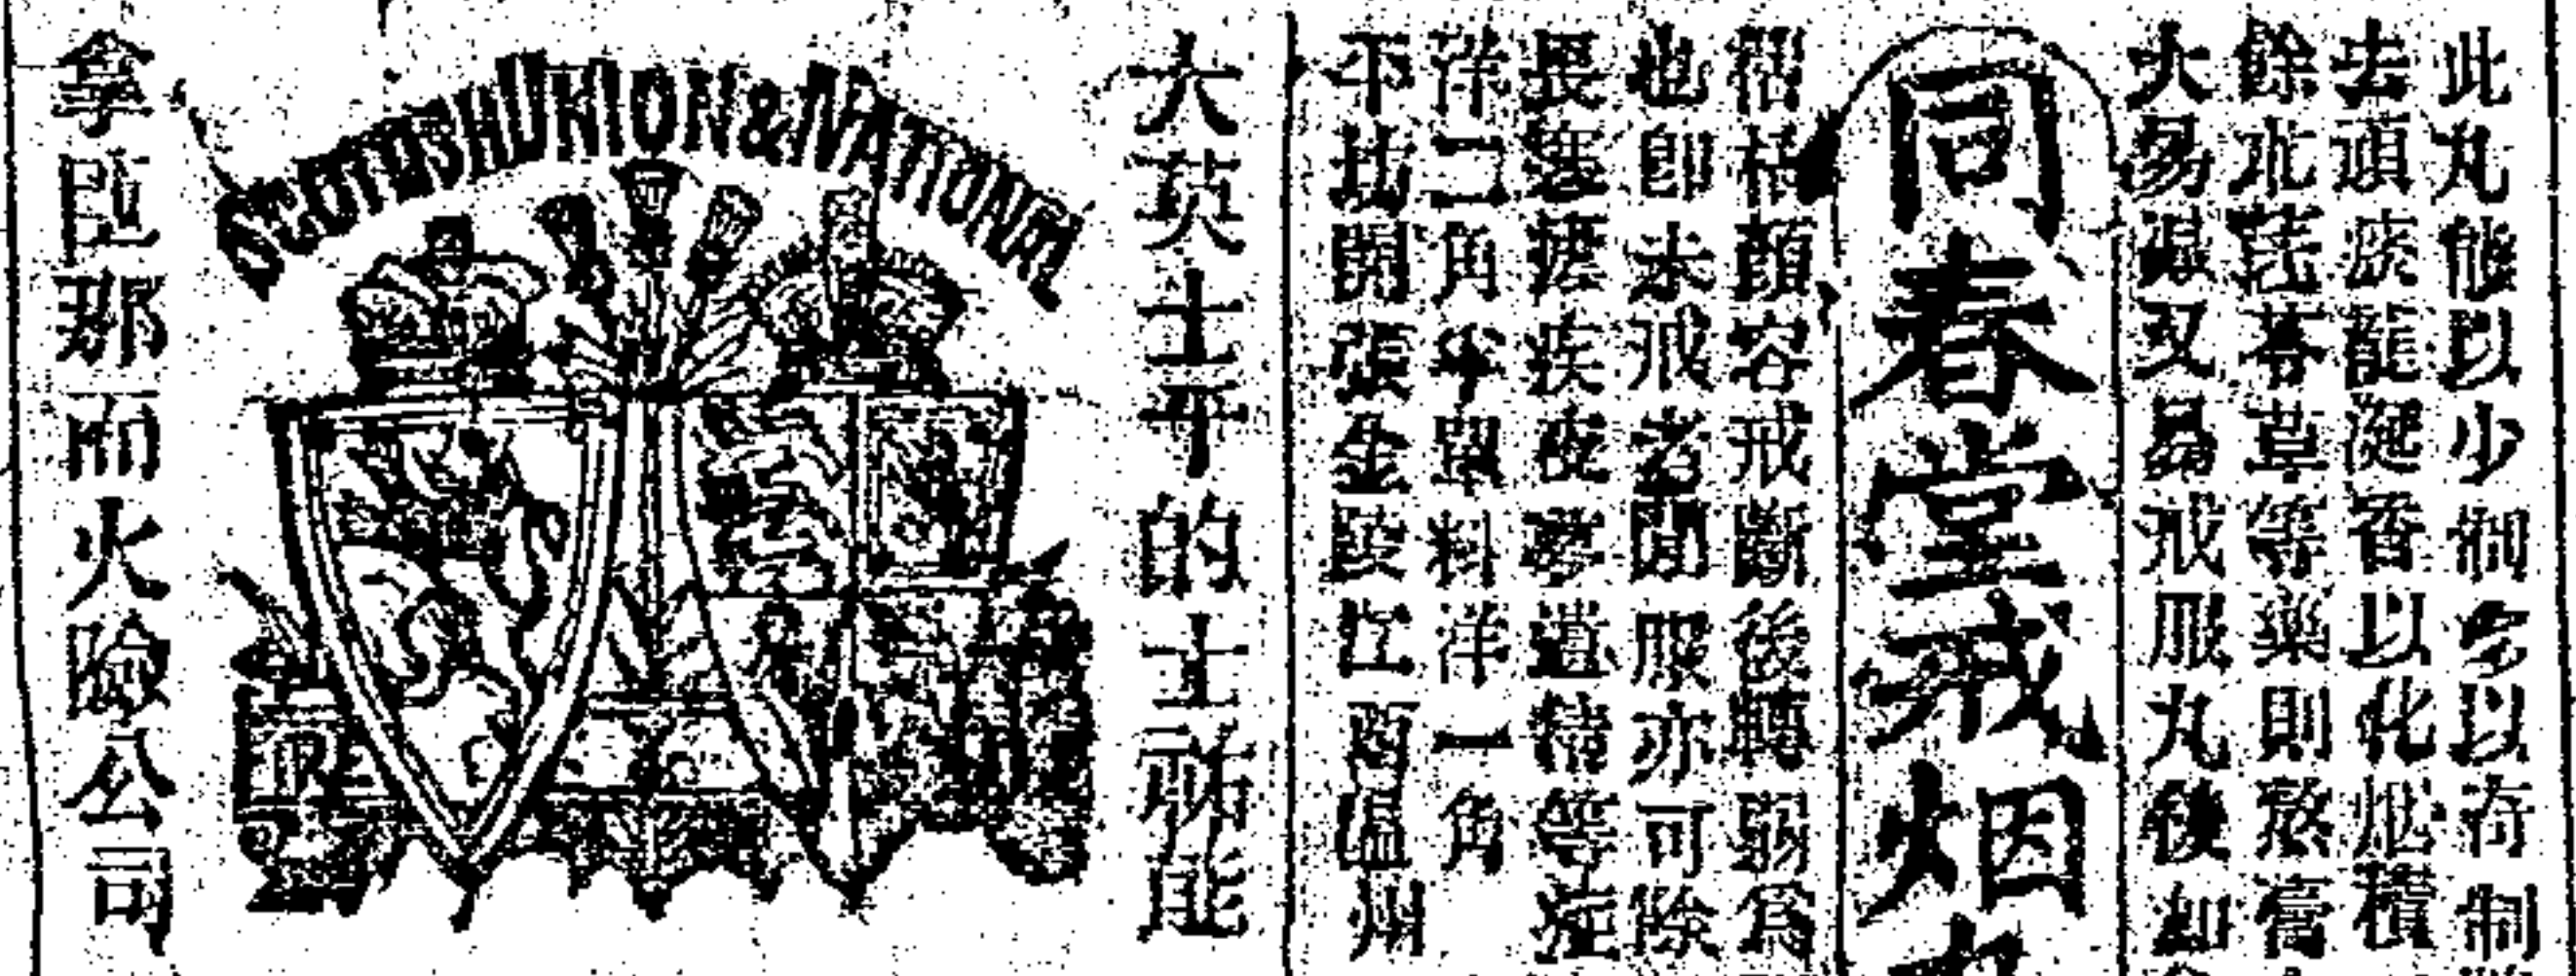 此丸能以少制多以奇制
去頑痰龍涎香以化烟積
餘朮茯苓草等藥則熬膏
大易減又易戒服丸後如
同春堂戒烟
枯顏容戒斷後轉弱爲
也卽未戒者間服亦可除
畏寒瘧疾夜夢遺精等症
洋二角半單料洋一角
開張金陵江西溫州
大英士乎的士祐能
SCOTTISH UNION & NATIONAL
拿臣那而火險公司